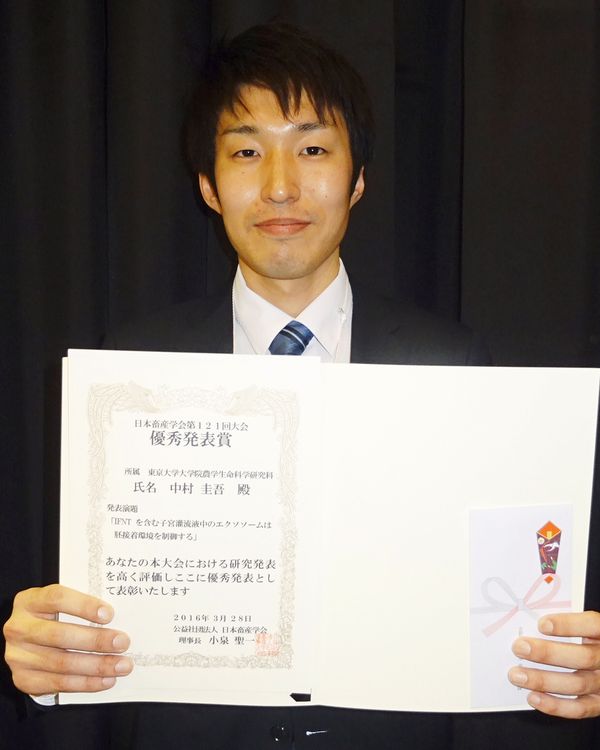 日本畜産学会第121回大会
優秀発表賞
所属 東京大学大学院農学生命科学研究科
氏名 中村 圭吾 殿
発表演題
「IFNT を含む子宮灌流液中のエクソソームは
胚接着環境を制御する」
あなたの本大会における研究発表
を高く評価しここに優秀発表とし
て表彰いたします
2016年3月28日
公益社団法人 日本畜産学会
理事長 小泉 聖一